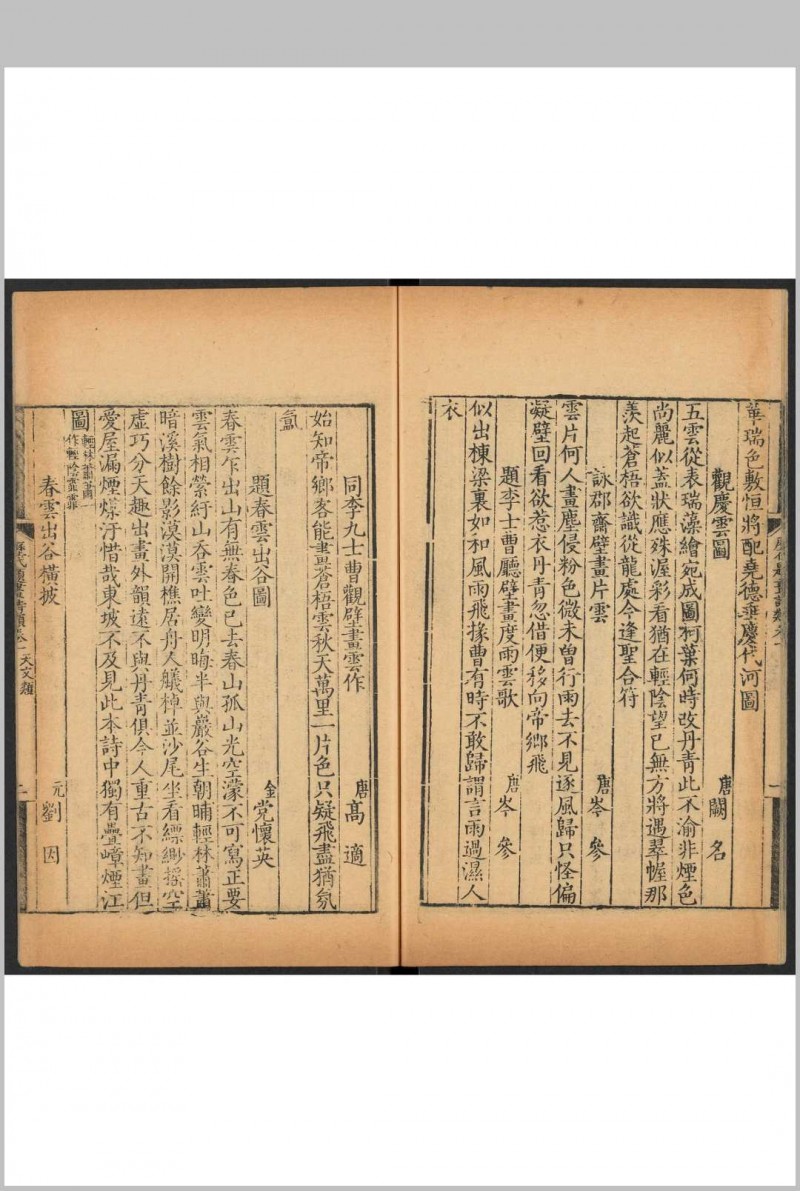 華瑞色敷恒將配堯德垂慶代河圖
觀慶雲圖 唐 闕名
五雲從表瑞藻繪宛成圖柯葉何時改丹青此不渝非煙色
尚麗似蓋狀應殊渥彩看猶在輕陰望已無方將遇翠幄那
羨起蒼梧欲識從龍處今逢聖合符
詠郡齋壁畫片雲 唐 岑參
雲片何人畫塵侵粉色微未曾行雨去不見逐風歸只怪偏
凝壁回看欲惹衣丹青忽借便移向帝鄉飛
題李士曹廳壁畫度雨雲歌 唐 岑參
似出棟梁裏如和風雨飛掾曹有時不敢歸謂言雨過濕人
衣
同李九士曹觀壁畫雲作 唐 高適
始知帝鄉客能畫蒼梧雲秋天萬里一片色只疑飛盡猶氛
氳
題春雲出谷圖 金 党懷英
春雲乍出山有無春色已去春山孤山光空濛不可寫正要
雲氣相縈紆山吞雲吐變明晦半與巖谷生朝晡輕林蕭蕭
暗溪樹餘影漠漠開樵居舟人艤棹並沙尾坐看縹緲搖空
虛巧分天趣出畫外韻遠不與丹青俱今人重古不知畫但
愛屋漏煙煤汙惜哉東坡不及見此本詩中獨有疊嶂煙江
圖 輕林蕭蕭一作輕陰霏霏
春雲出谷橫披 元 劉因
歷代題畫詩類卷一 天文類